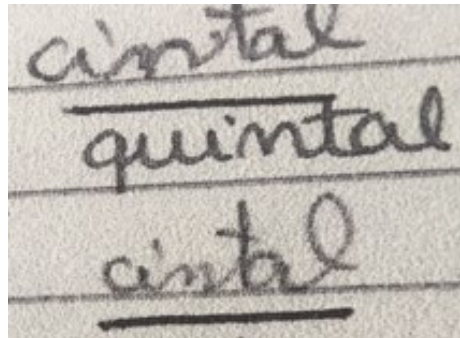 cintal
quintal
cintal